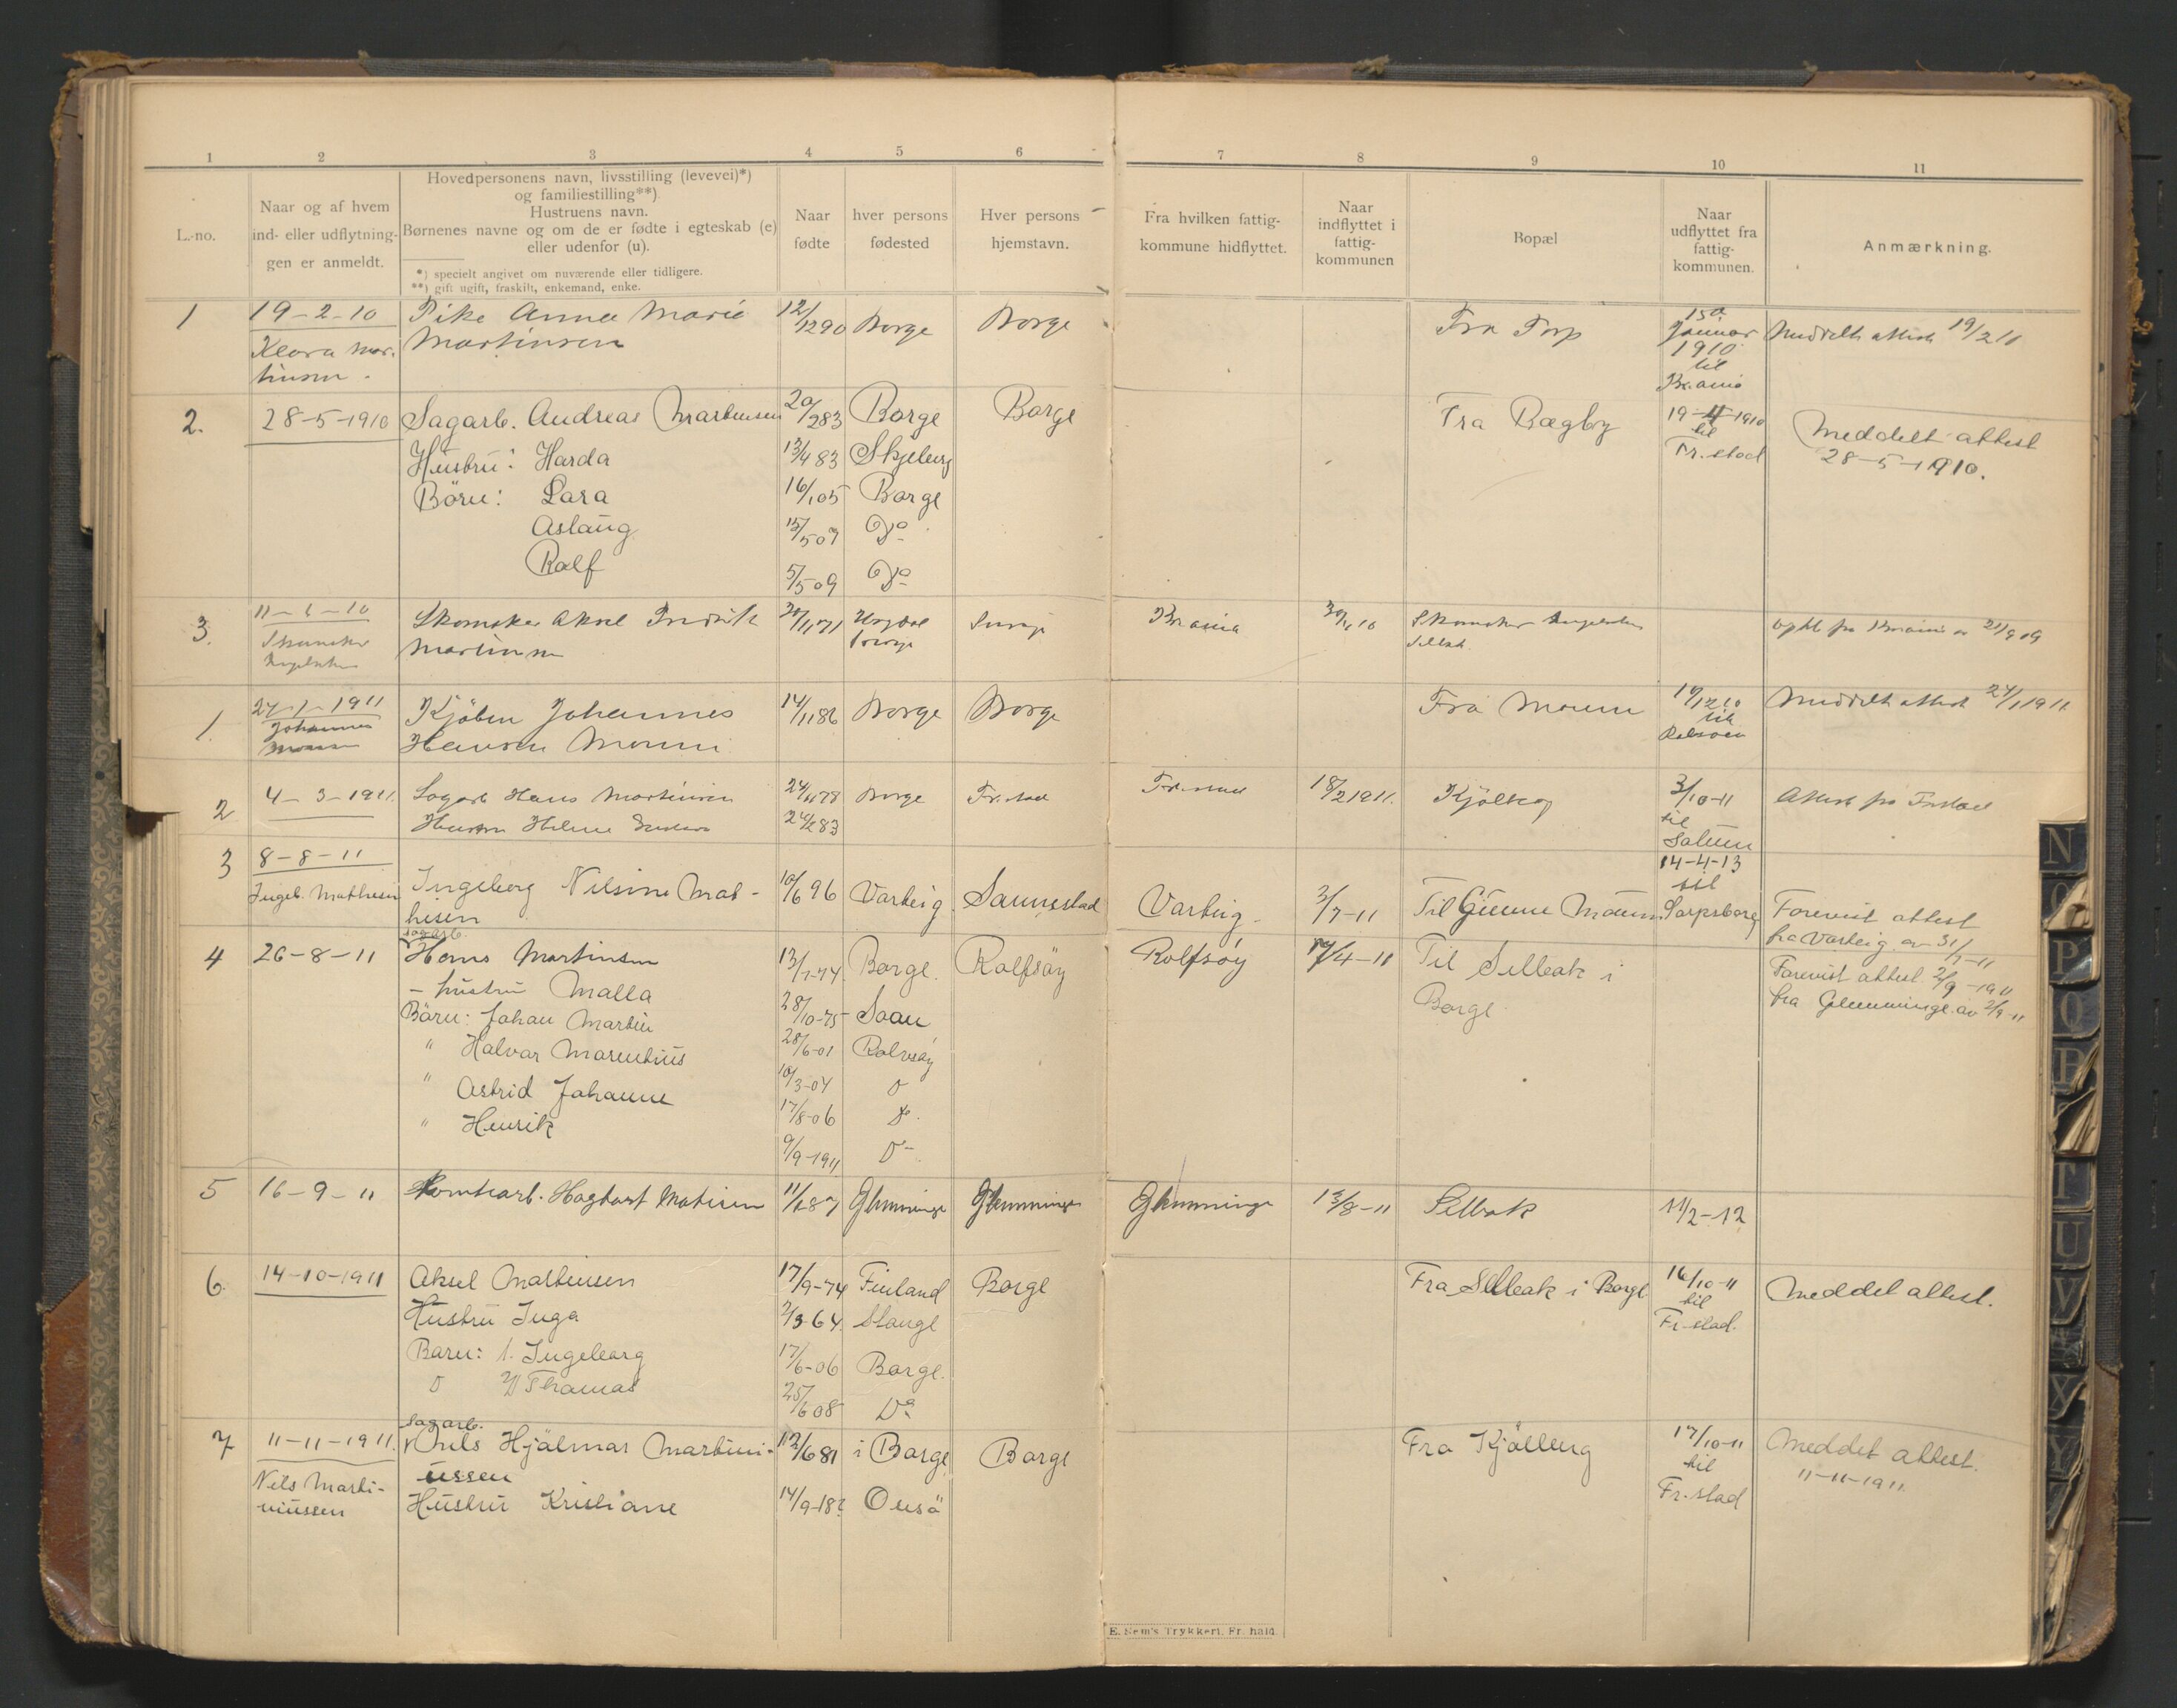 1 2 3 4 5 6 7 8 9 10 11
L.-no.
Naar og af hvem
ind- eller udflytnin-
gen er anmeldt.
Hovedpersonens navn, livsstilling (levevei)*)
og familiestilling**)
Hustruens navn.
Børnenes navne og om de er fødte i egteskab (e)
eller udenfor (u).
*) specielt angivet om nuværende eller tidligere.
**) gift ugift, fraskilt, enkemand, enke.
Naar
fødte
hver persons
fødested
Hver persons
hjemstavn.
Fra hvilken fattig-
kommune hidflyttet.
Naar
indflyttet i
fattig-
kommunen
Bopæl
Naar
udflyttet fra
fattig-
kommunen.
Anmærkning.
1 19-2-10 Pike Anna Marie 12/12 90 Borge Borge Fra Torp 15de Januar 1910 til Kr.ania Meddelt attest 19/2 11
Klara Mar-
tinsen.
Martinsen
2. 28-5-1910 Sagarb. Andreas Martinsen 20/2 83 Borge Borge Fra Bægby 19-4-1910 til Fr.stad Meddelt attest
28-5-1910.
Hustru: Harda 13/4 83 Skjeberg
Börn: Lara 16/1 05 Borge
Aslaug 15/5 07 Do
Rolf 5/5 09 Do
3. Skomaker Aksel Martinsen 71
Skomaker
1. 24-1-1911 Kjøbm Johannes 14/11 86 Borge Borge Fra Moum 12 10 til Rolvsøy Meddelt attest 24/1 1911.
Johannes
Hansen Moum
2 4-3-1911. Sagarb Hans Martinsen 78 Borge Fr.stad Fr.stad 18/2 1911. Kjölberg 3/10-11 til Salum Attest fra Fr.stad
Hustru Helene 83
3 8-8-11 Ingeborg Nilsine Mat- 10/6 96 Varteig Sannestad Varteig 3/7-11 Til Gunne Moum 14-4-13 til Sarpsborg Forevist attest
fra Varteig av 31/7-11
Ingeb. Mathisen
hisen
4 26-8-11 sagarb.
Hans Martinsen 13/7-74 Borge. Rolfsöy Rolfsöy 4-11 Til Selbak i
Borge.
Forevist attest 2/9-1911
fra Glemminge av 2/9-11
- hustru Malla 28/10-75 Soan
Börn: Johan Martin 28/6-01 Rolvsöy
" Halvar Marentius 10/3-04 D
" Astrid Johanne 17/8-06 Do.
" Henrik 9/9-1911 D-
5 16-9-11 Tomtearb. Hagbart Matisen 87 Glemminge Glemminge Glemminge 13/8-11 Selbak 11/2-12
6. 14-10-1911 Aksel Martinsen 17/9-74 Finland Borge Fra Selbak i Borge 16/10-11 til Fr-stad. Meddel attest.
Hustru Inga 2/3-64. Stange
Barn: 1. Ingeborg 17/6-06 Borge.
D 2) Thomas 25/6 08 Do
7 11-11-1911. sagarb.
Nils Hjalmar Martini- 12/6 81 i Borge Borge Fra Kjölberg 17/10-11 til Fr.stad Meddel attest.
11-11-1911.
Nils Marti-
niussen
ussen
Hustru Kristiane 14/9-18? Onsö
E. Sem's Trykkeri. Fr. hald.
N O P Q R T U V X Y